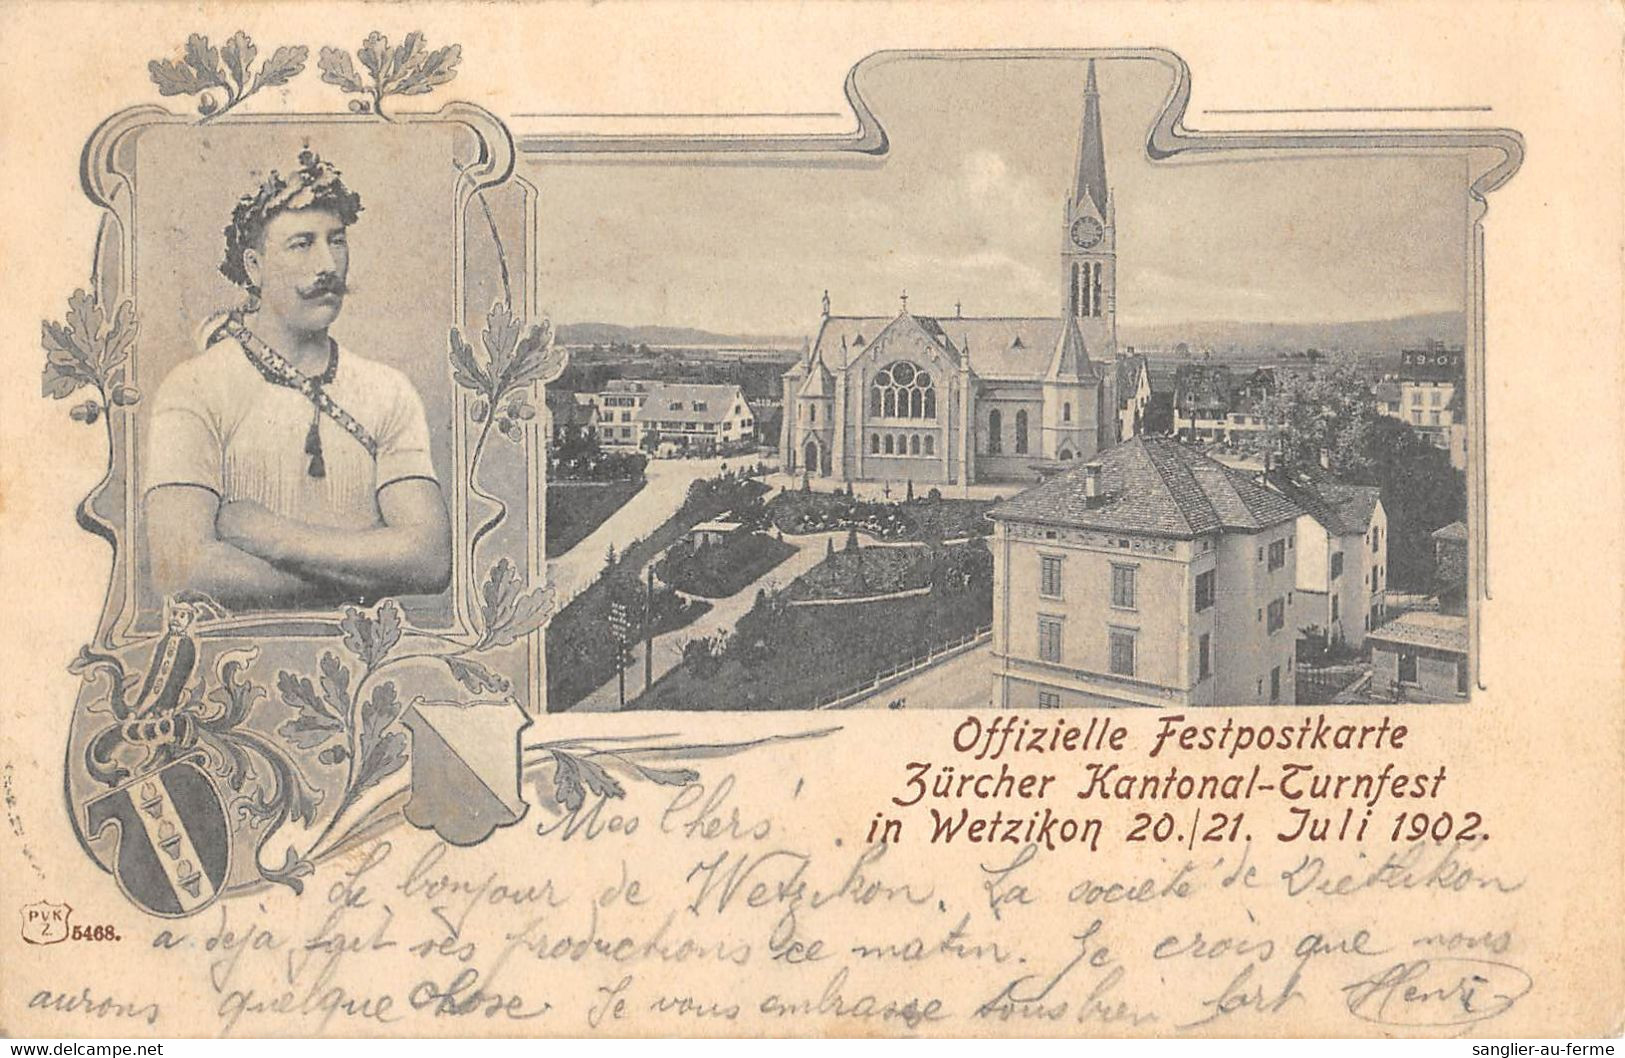 19-01
Offizielle Festpostkarte
Zürcher Kantonal-Turnfest
in Wetzikon 20./21. Juli 1902.
Mes Chers
Le bonjour de Wetzikon. La societé de Dietlikon
a deja fait ses productions ce matin. Je crois que nous
aurons quelque chose. Je vous embrasse tous bien fort Henri
PVK
Z
5468.
delcampe.net
sanglier-au-ferme